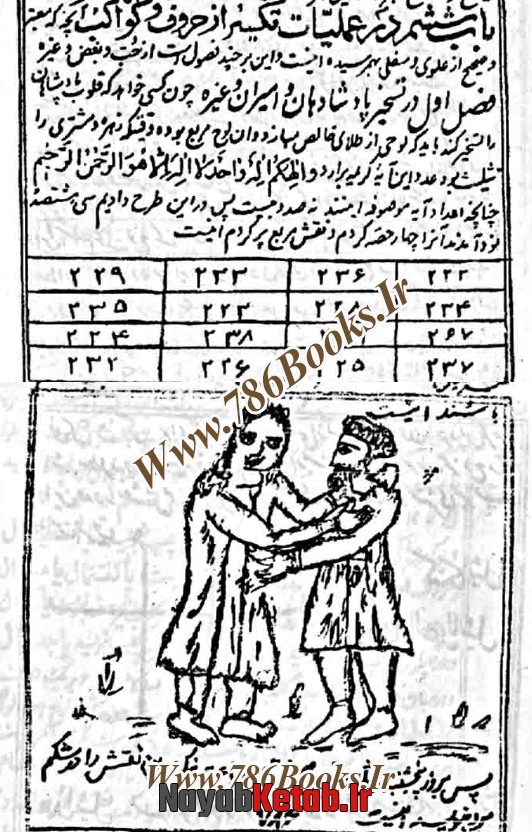 باب ششم در عملیات تکسیر از حروف و کواکب آنچه که معتبر
و صحیح از علوی و سفلی بهر سیده اینست و این بر چند فصول است از حب و بغض و غیره
فصل اول در تسخیر پادشاهان و امیران و غیره چون کسی خواهد که قلوب پادشاهان
را تسخیر کند باید که لوحی از طلای خالص بسازد و آن لوح مربع بوده وقتیکه زهره و مشتری را
تثلیث بود عدد این آیه کریمه بر آرد والهکم اله واحد لا اله الا هو الرحمن الرحیم
چنانچه اعداد آیه موصوفه اینند نه صد و بیست پس در این طرح دادیم سی
نود آمدند آنرا چهار حصه کردم و نقش مربع پر کردم اینست
۲۲۹ ۲۳۳ ۲۳۶ ۲۲۲
۲۳۵ ۲۲۳ ۲۳۴
۲۲۴ ۲۳۸
۲۳۲ ۲۲۶ ۲۲۵ ۲۳۷
باشند اینست
Www.786Books.Ir
پس بروز نقش را در شکم
Www.786Books.Ir
NayabKetab.Ir